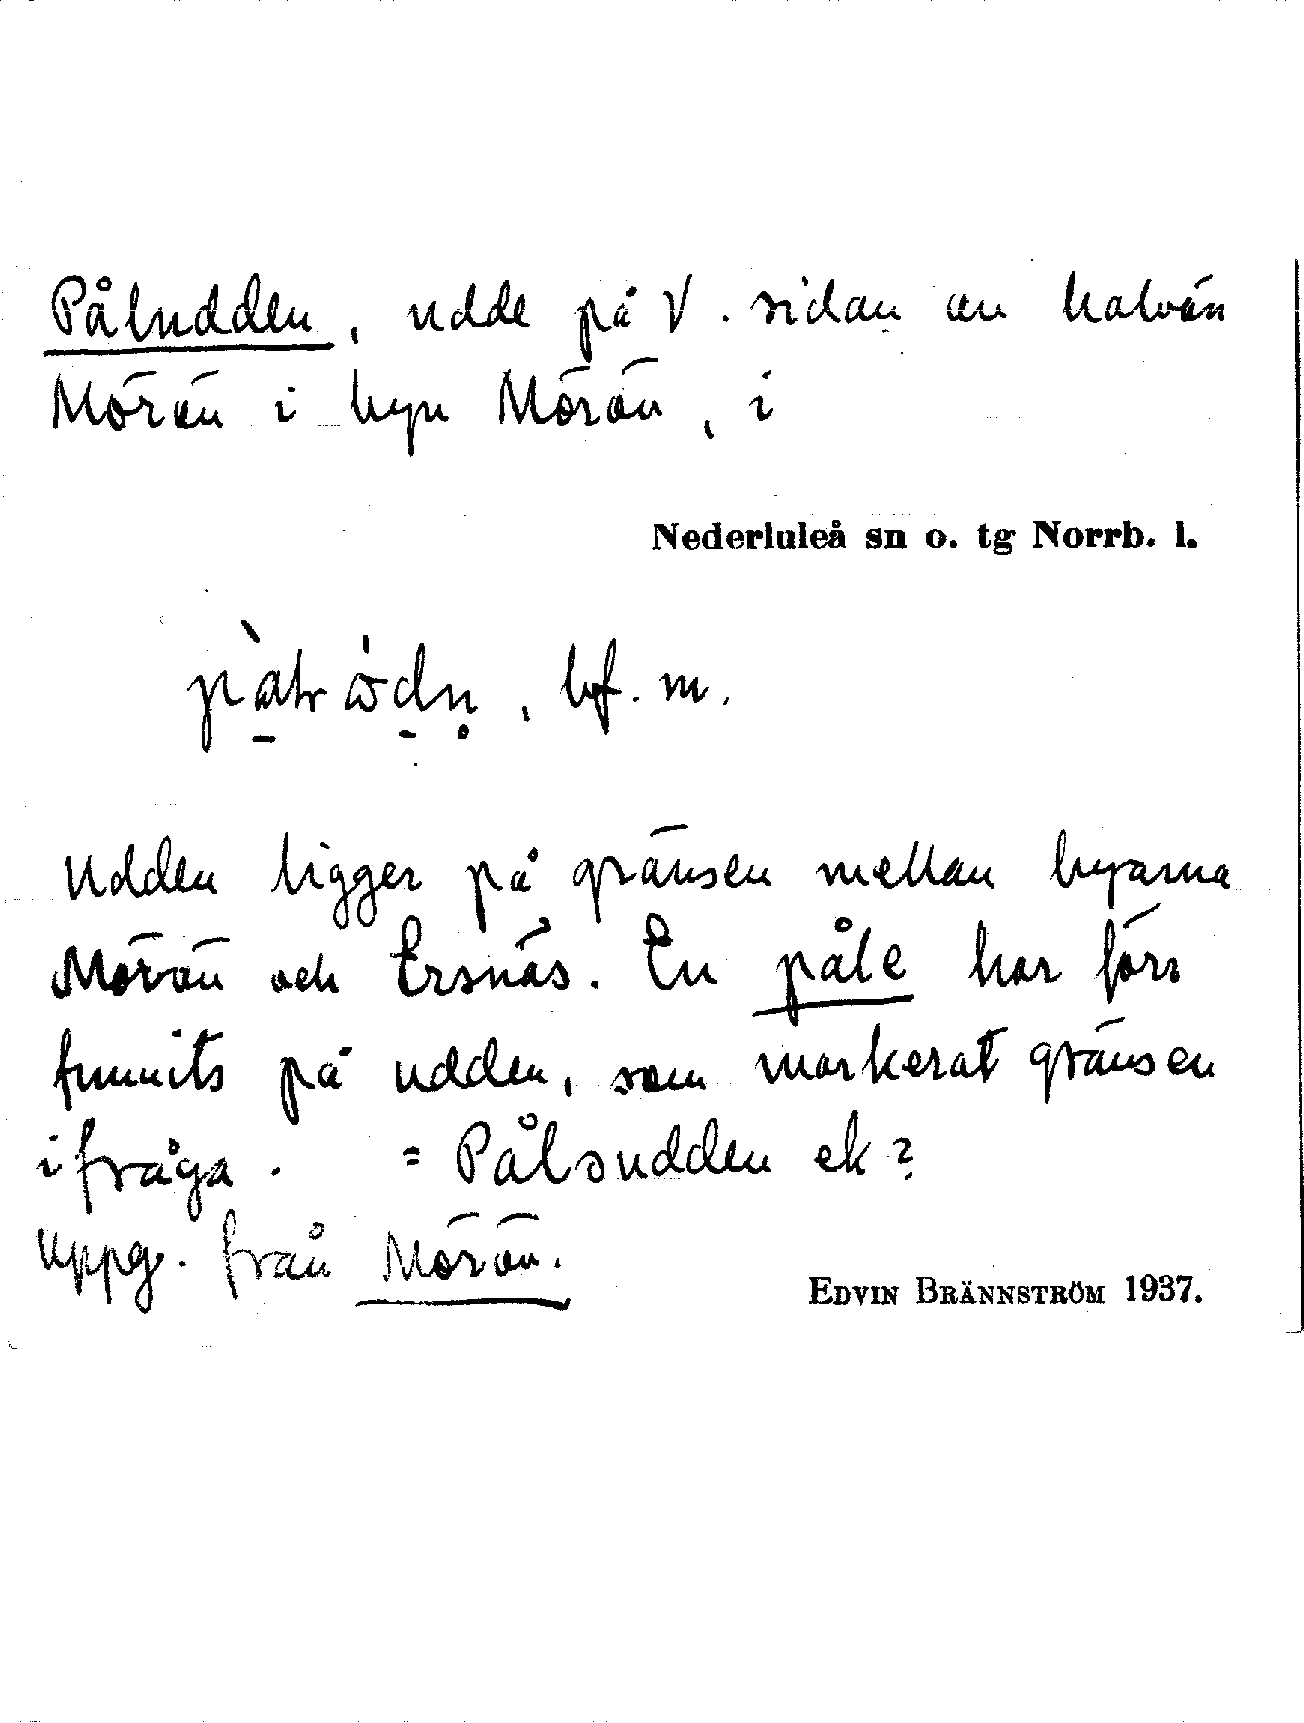 Påludden, udde på V. sidan av halvön
Mörön i byn Mörön, i
Nederluleå sn o. tg Norrb. l.
bf. m.
Udden ligger på gränsen mellan byarna
Mörön och Ersnäs. En påle har förr
funnits på udden, som markerat gränsen
ifråga. = Pålsudden ek?
Uppg. från Mörön.
EDVIN BRÄNNSTRÖM 1937.